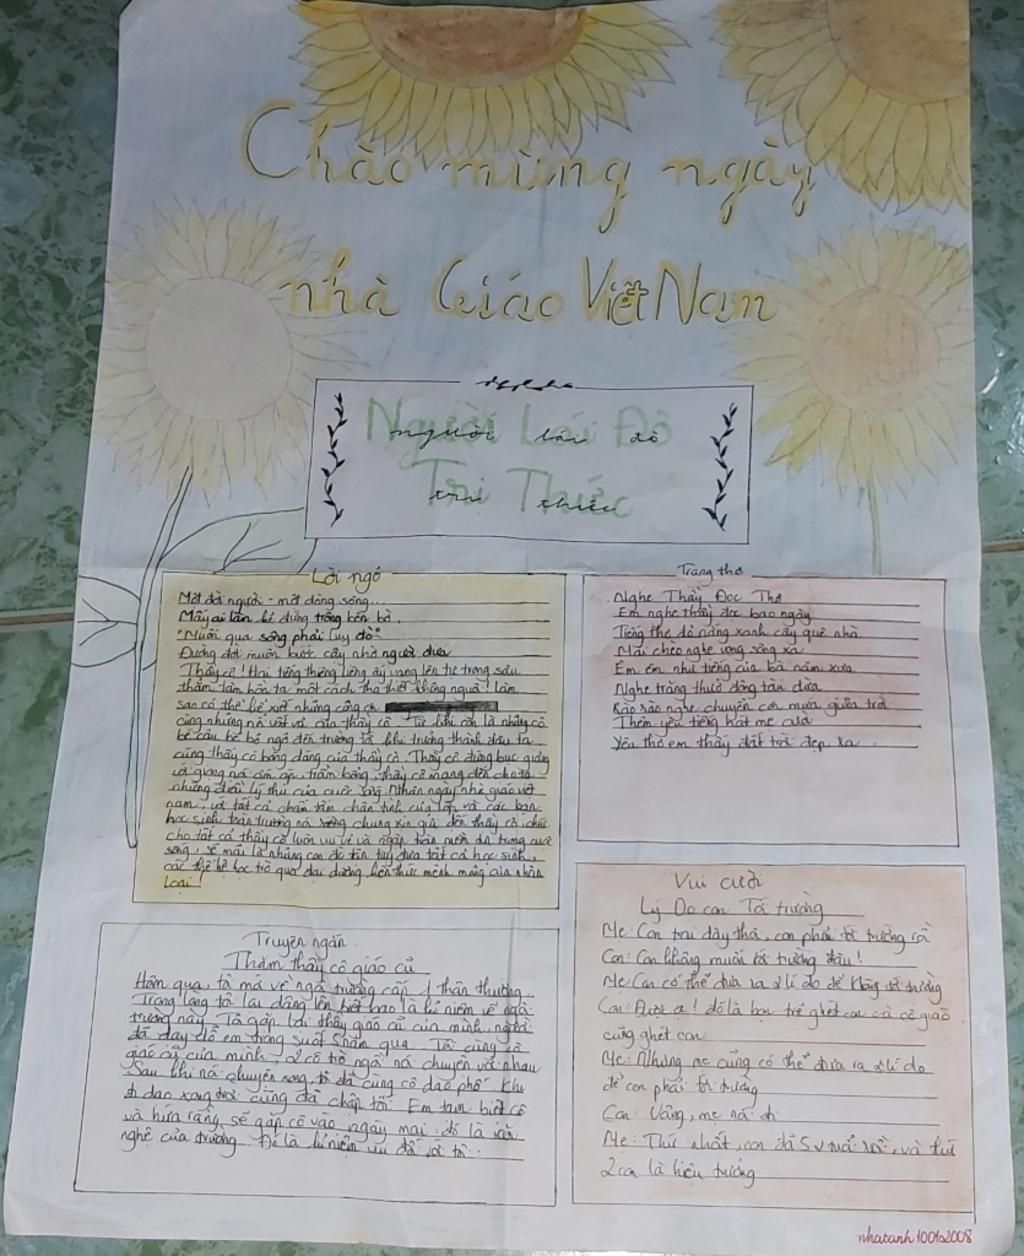 Chào mừng ngày
nhà Giáo Việt Nam
Người Lái Đò
người lái đò
Tri Thức
tri thức
Lời ngỏ
Một đời người - một dòng sông...
Mấy ai làm kẻ đứng trông bến bờ.
"Muốn qua sông phải lụy đò"
Đường đời muôn bước cậy nhờ người đưa
Thầy cô! Hai tiếng thiêng liêng ấy vang lên từ trong sâu
thẳm tâm hồn ta một cách tha thiết không nguôi! Làm
sao có thể kể xiết những công ơn
cùng những nỗi vất vả của thầy cô. Từ khi còn là những cô
bé cậu bé bỡ ngỡ đến trường tới khi trưởng thành đâu ta
cũng thấy có bóng dáng của thầy cô. Thầy cô đứng bục giảng
với giọng nói ấm áp, trầm bổng, thầy cô mang đến cho ta
những điều lý thú của cuộc sống. Nhân ngày nhà giáo việt
nam, với tất cả chân tâm chân tình của lớp và các bạn
học sinh toàn trường nói chung xin gửi đến thầy cô, chúc
cho tất cả thầy cô luôn vui vẻ và ngập tràn niềm tin trong cuộc
sống, sẽ mãi là những con đò tận tụy đưa tất cả học sinh,
các thế hệ học trò qua đại dương kiến thức mênh mông của nhân
loại!
Trang thơ
Nghe Thầy Đọc Thơ
Em nghe thầy đọc bao ngày
Tiếng thơ đỏ nắng xanh cây quê nhà
Mái chèo nghe vọng sông xa
Êm êm như tiếng của bà năm xưa
Nghe trăng thưở động tàu dừa
Rào rào nghe chuyển cơn mưa giữa trời
Thêm yêu tiếng hát mẹ
Yêu thơ em thấy đất trời đẹp ra.
Truyện ngắn
Thăm thầy cô giáo cũ
Hôm qua, tôi mới về ngôi trường cấp 1 thân thương.
Trong lòng tôi lại dâng lên biết bao là kỉ niệm về ngôi
trường này. Tôi gặp lại thầy giáo cũ của mình, người
đã dạy dỗ em trong suốt 5 năm qua. Tôi cùng cô
giáo cũ của mình, 2 cô trò ngồi nói chuyện với nhau
Sau khi nói chuyện xong, tôi đã cùng cô dạo phố. Khi
đi dạo xong trời cũng đã chập tối. Em tạm biệt cô
và hứa rằng sẽ gặp cô vào ngày mai, đó là văn
nghệ của trường. Đó là kỉ niệm vui đối với tôi.
Vui cười
Lý Do con Tới trường
Mẹ: Con trai dậy thôi, con phải tới trường rồi
Con: Con không muốn tới trường đâu!
Mẹ: Con có thể đưa ra 2 lí do để không tới trường
Con: Được ạ! đó là bọn trẻ ghét con và cô giáo
cũng ghét con
Mẹ: Nhưng mẹ cũng có thể đưa ra 2 lí do
để con phải tới trường
Con: Vâng, mẹ nói đi
Mẹ: Thứ nhất, con đã 5 tuổi rồi, và thứ
2 con là hiệu trưởng
nhatanh10012008